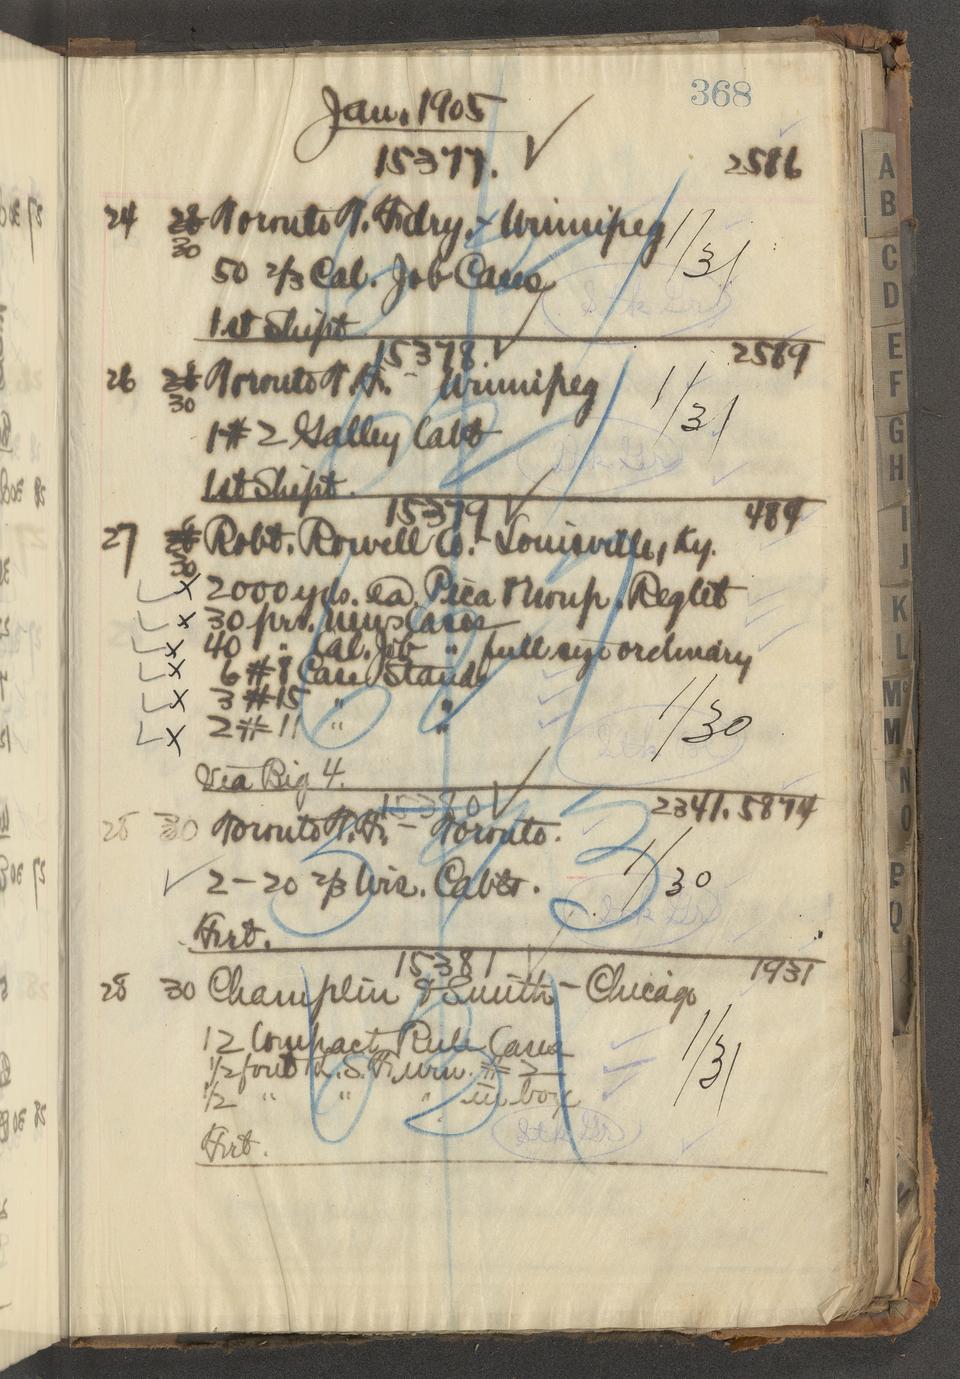 368
Jan. 1905
15377. 2586
24 28 30 Toronto T. Fdry. - Winnipeg 1/31
50 2/3 Cal. Job Cases
1st Shipt.
15378. 2589
26 28 30 Toronto T. F. - Winnipeg 1/31
1 # 2 Galley Cabt
1st Shipt.
15379 489
27 28 30 Robt. Rowell Co. - Louisville, Ky.
2000 yds. ea. Pica & Nonp. Reglet
30 prs. News Cases
40 " Cal. Job " full size ordinary
6 # 8 Case Stands
3 # 15 " "
2 # 11 " " 1/30
Via Big 4.
15380 2341.5874
28 30 Toronto T. F. - Toronto.
2 - 20 2/3 Wis. Cabts. 1/30
Frt.
15381 1931
28 30 Champlin & Smith - Chicago
12 Compact Rule Cases 1/31
1/2 font L. S. # 2
1/2 " " " in box
Stk Gr
Frt.
A
B
C
D
E
F
G
H
I
J
K
L
Mc
M
N
O
P
Q